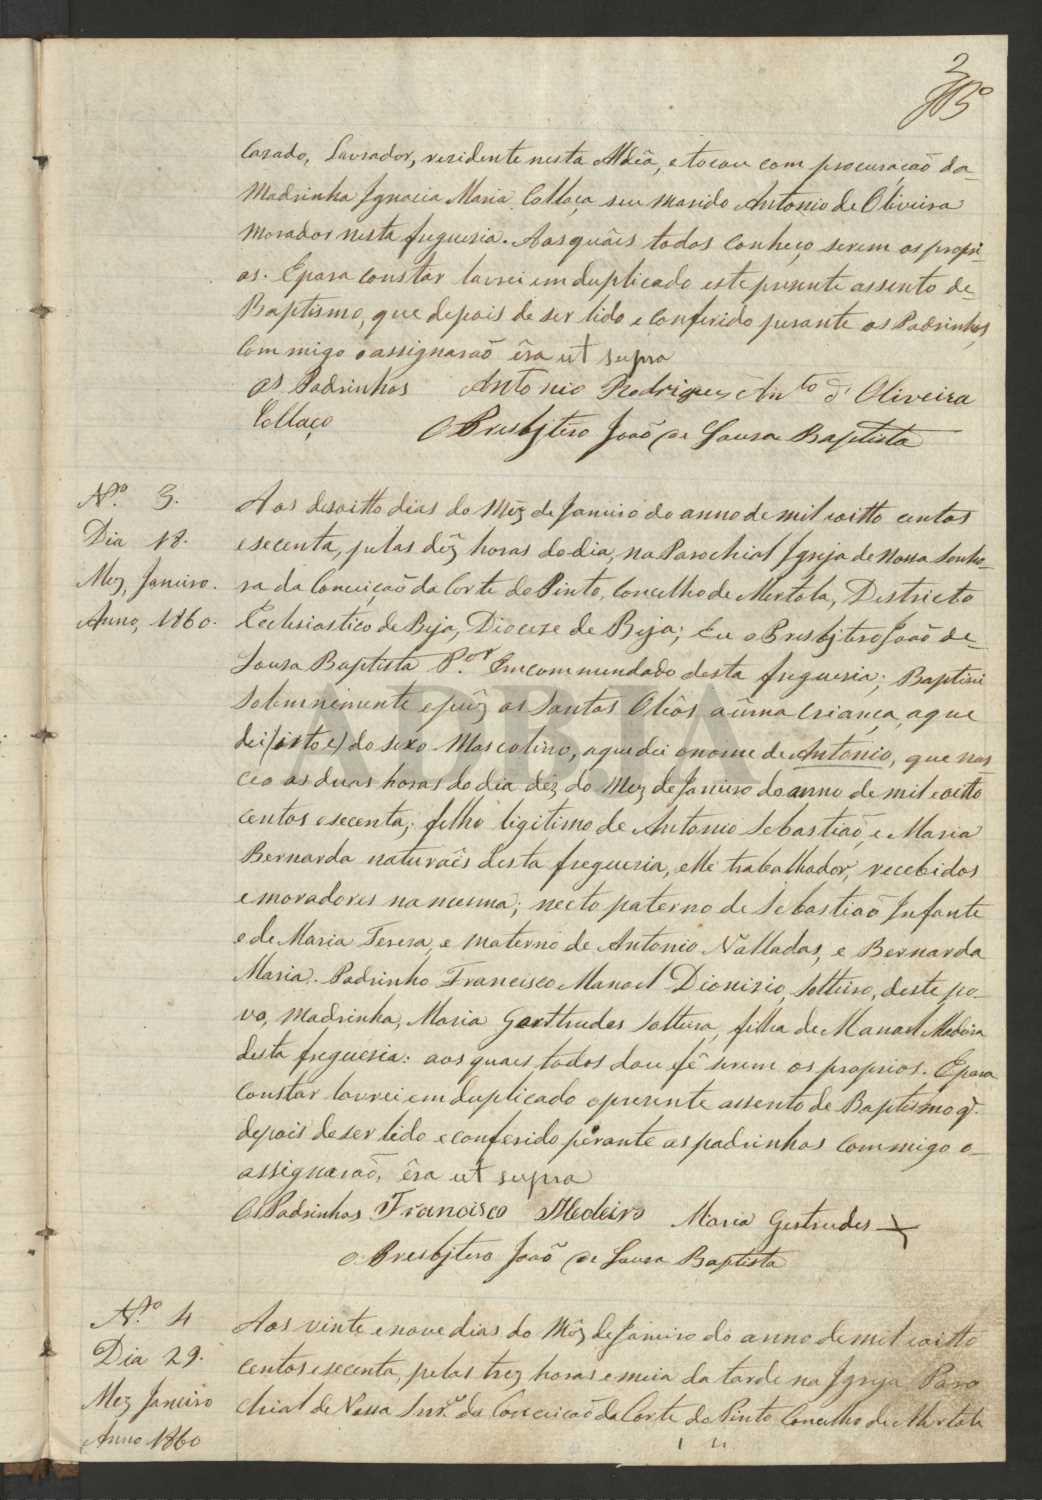 2
Casado, Lavrador, rezidente nesta Aldêa, e tocou com procuração da
Madrinha Ignacia Maria Collaça seu marido Antonio de Oliveira
morador nesta freguesia. Aos quâis todos conheço serem os propri-
os. E para constar lavrei em duplicado este prezente assento de
Baptismo, que depois de ser lido e conferido perante os Padrinhos,
Com migo o assignaraõ êra ut supra
Os Padrinhos Antonio Rodrigues Anto d'Oliveira
Collaço O Presbjtero Joaõ de Sousa Baptista
Nº. 3.
Dia 18.
Mez, Janeiro.
Anno, 1860.
Aos desoitto dias do Mêz de Janeiro do anno de mil eoitto centos
esecenta, pelas dêz horas do dia, na Parochial Igreja de Nossa Senho-
ra da Conceição da Corte do Pinto, Concelho de Mertola, Destricto
Ecclesiastico de Beja, Diocese de Beja; Eu o Presbjtero Joaõ de
Sousa Baptista P.or Emcommendado desta freguesia; Baptizei
Solemnemente e puz os Santos Olêos a ûma Criança, a que
dei (isto e) do sexo Mascolino, aque dei o nome de Antonio, que nas-
ceo as duas horas do dia dêz do Mez de Janeiro do anno de mil eoitto
centos esecenta; filho ligitimo de Antonio Sebastiaõ, e Maria
Bernarda naturaês desta freguesia, elle trabalhador, recebidos
e moradores na mesma; necto paterno de Sebastiaõ Infante
e de Maria Teresa, e materno de Antonio Valladas, e Bernarda
Maria. Padrinho Francisco Manoel Dionizio, Solteiro, deste po-
vo, Madrinha, Maria Gerttrudes solteira, filha de Manoel Medeira
desta freguesia: aos quaes todos dou fê serem os proprios. E para
Constar lavrei em duplicado o presente assento de Baptismo q.
depois de ser lido e conferido perante os padrinhos commigo o
assignaraõ, êra ut supra
Os Padrinhos Francisco Medeiro Maria Gertrudes +
O Presbjtero Joaõ de Sousa Baptista
N.º 4
Dia 29.
Mez Janeiro
Anno 1860
Aos vinte e nove dias do Mêz de Janeiro do anno de mil eoitto
centos esecenta, pelas trez horas e meia da tarde na Igreja Paro
chial de Nossa Snr.ª da Conceicaõ da Corte do Pinto Concelho de Mertola
ADBJA